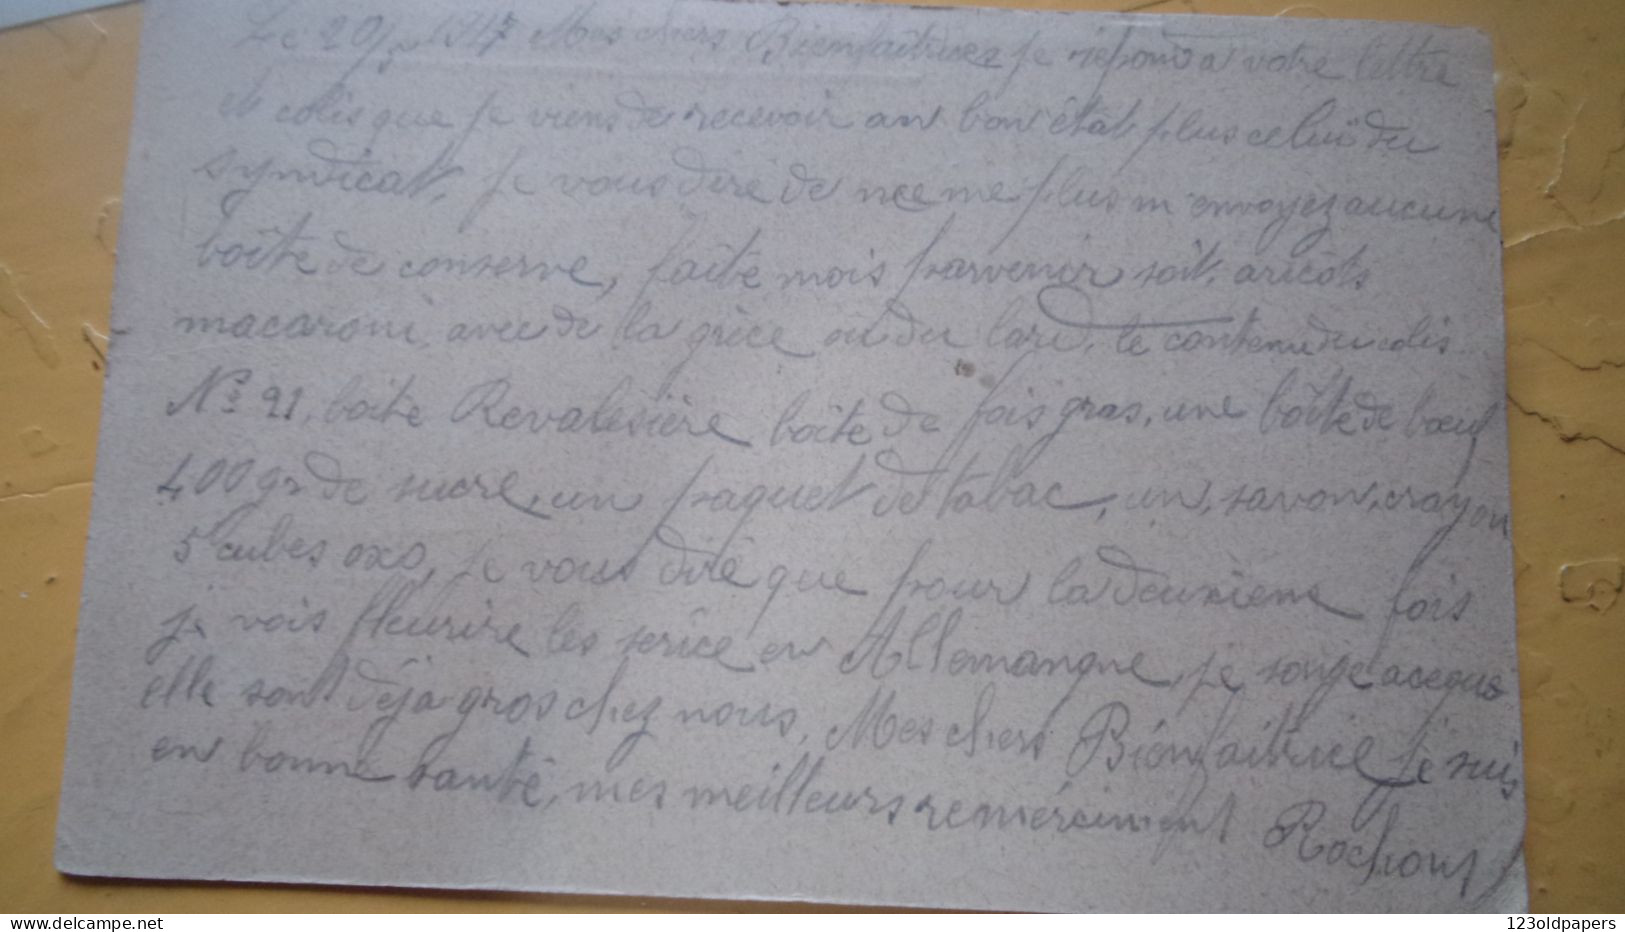 Le 20 1917 Mes chers Bienfaitrices je répond a votre lettre
et colis que je viens de recevoir an bon état plus celui du
syndicat, je vous dire de nee me plus m envoyez aucune
boîte de conserve, faite mois parvenir soit, aricots
macaroni, avec de la grèce ou du lard, le contenu du colis
No 21, boite Revalesière boîte de fois gras, une boîte de bœuf
400 gr de sucre, un paquet de tabac, un, savon, crayon
5 cubes oxo, je vous dire que pour la deuxiens fois
je vois fleurire les serice en Allemangne, je songe a ceque
elle sont déjà gros chez nous, Mes chers Biénfaitrice je suis
en bonne santé, mes meilleurs remérciment Rochout
123oldpapers